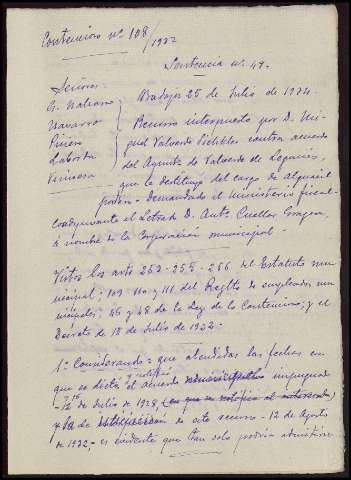 Contencioso nº 108/1932
Sentencia nº 47.
Señores
Badajoz 25 de Julio de 1934.
Navarro
Recurso interpuesto por D. Mi-
Piñero
guel Valverde contra acuerdo
Laborda
del Ayunto de Valverde de Leganés,
que le destituyó del cargo de alguacil
portero. Demandado el Ministerio fiscal
coadyuvante el Letrado D. Anto Cuellar
á nombre de la Corporación municipal.
Vistos los arts 253 - 255 - 256 del Estatuto mu-
nicipal; 109 110 y 111 del Reglto de empleados mu-
nicipales; 46 y 48 de la Ley de lo Contencioso; y el
Decreto de 18 de Julio de 1932.
1º Considerando: que atendidas las fechas en
que se dictó el acuerdo municipal impugnado
de Julio de 1928,
y la de este recurso - 12 de Agosto
de 1932, es evidente que tan solo podría admitirse